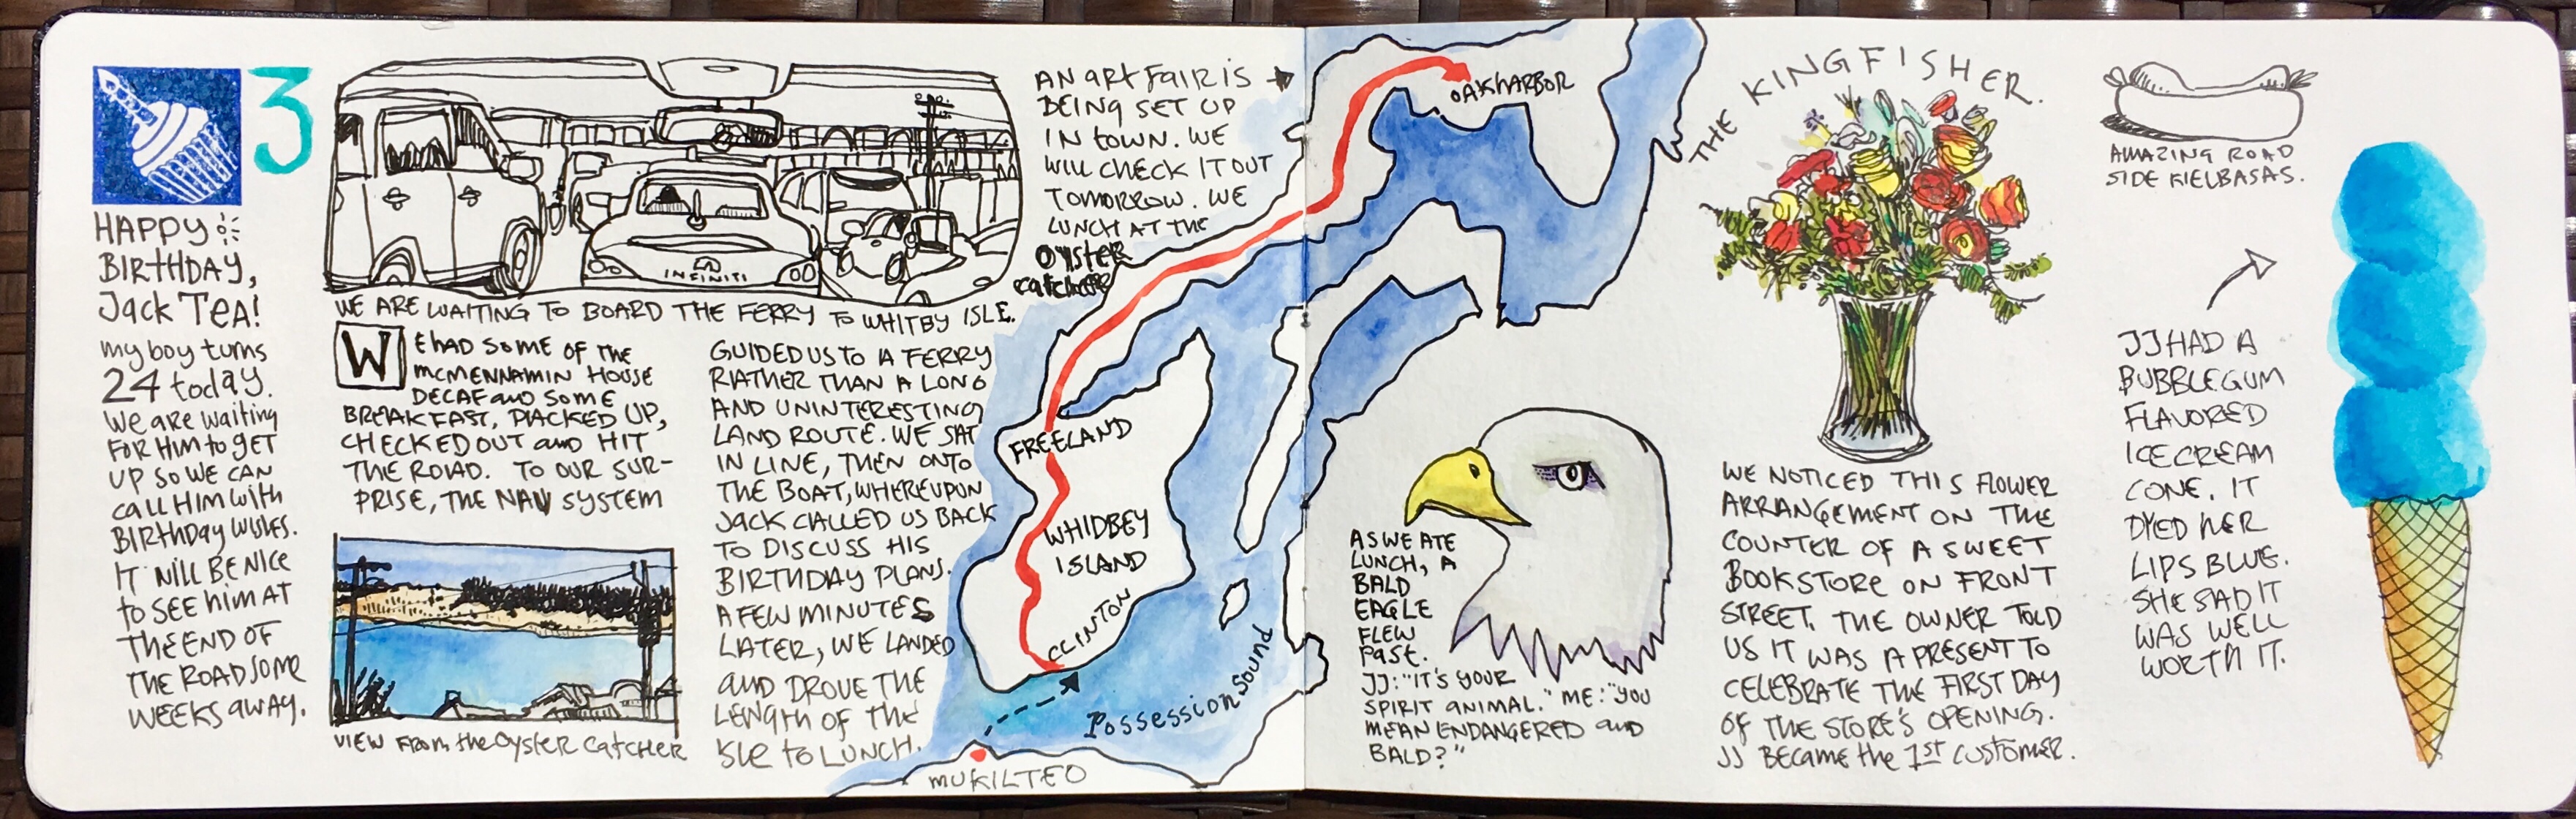 3
HAPPY
BIRTHDAY,
Jack TEA!
my boy turns
24 today.
We are waiting
FOR HIM to GET
UP SO WE CAN
CALL HIM WITH
BIRTHDAY WISHES.
IT WILL BE NICE
to SEE HIM AT
THE END OF
THE ROAD SOME
WEEKS AWAY.
INFINITI
WE ARE WAITING TO BOARD THE FERRY TO WHITBY ISLE.
WE HAD SOME OF THE
MCMENNAMIN HOUSE
DECAF AND SOME
BREAKFAST, PACKED UP,
CHECKED OUT AND HIT
THE ROAD. TO OUR SUR-
PRISE, THE NAV SYSTEM
VIEW FROM the OYSTER CATCHER
GUIDED US TO A FERRY
RATHER THAN A LONG
AND UNINTERESTING
LAND ROUTE. WE SAT
IN LINE, THEN ONTO
THE BOAT, WHEREUPON
JACK CALLED US BACK
TO DISCUSS HIS
BIRTHDAY PLANS.
A FEW MINUTES
LATER, WE LANDED
AND DROVE THE
LENGTH OF THE
ISLE TO LUNCH.
AN ART FAIR IS
BEING SET UP
IN TOWN. WE
WILL CHECK IT OUT
TOMORROW. WE
LUNCH AT THE
OYSTER
CATCHER
OAK HARBOR
FREELAND
WHIDBEY
ISLAND
CLINTON
Possession Sound
MUKILTEO
AS WE ATE
LUNCH, A
BALD
EAGLE
FLEW
PAST.
JJ: "IT'S YOUR
SPIRIT ANIMAL." ME: "YOU
MEAN ENDANGERED AND
BALD?"
THE KINGFISHER.
WE NOTICED THIS FLOWER
ARRANGEMENT ON THE
COUNTER OF A SWEET
BOOKSTORE ON FRONT
STREET. THE OWNER TOLD
US IT WAS A PRESENT TO
CELEBRATE THE FIRST DAY
OF THE STORE'S OPENING.
JJ BECAME the 1ST CUSTOMER.
AMAZING ROAD
SIDE KIELBASAS.
JJ HAD A
BUBBLEGUM
FLAVORED
ICE CREAM
CONE. IT
DYED HER
LIPS BLUE.
SHE SAID IT
WAS WELL
WORTH IT.